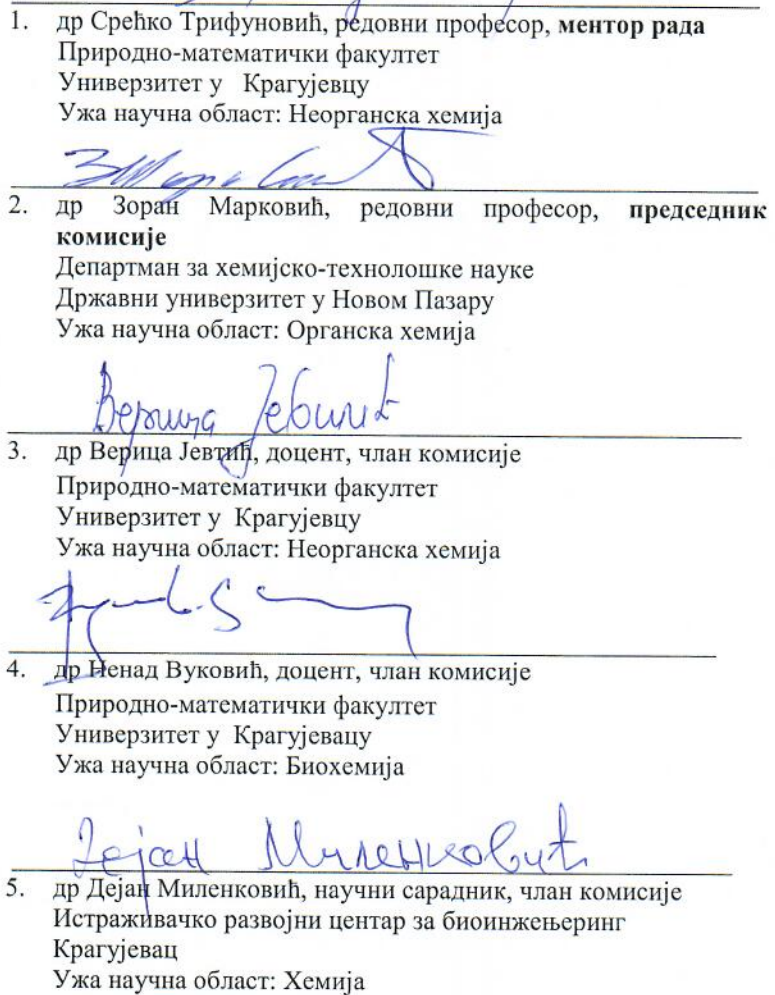 1. др Срећко Трифуновић, редовни професор, ментор рада
Природно-математички факултет
Универзитет у Крагујевцу
Ужа научна област: Неорганска хемија
2. др Зоран Марковић, редовни професор, председник
комисије
Департман за хемијско-технолошке науке
Државни универзитет у Новом Пазару
Ужа научна област: Органска хемија
Верица Јевтић
3. др Верица Јевтић, доцент, члан комисије
Природно-математички факултет
Универзитет у Крагујевцу
Ужа научна област: Неорганска хемија
4. др Ненад Вуковић, доцент, члан комисије
Природно-математички факултет
Универзитет у Крагујевацу
Ужа научна област: Биохемија
Дејан Миленковић
5. др Дејан Миленковић, научни сарадник, члан комисије
Истраживачко развојни центар за биоинжењеринг
Крагујевац
Ужа научна област: Хемија